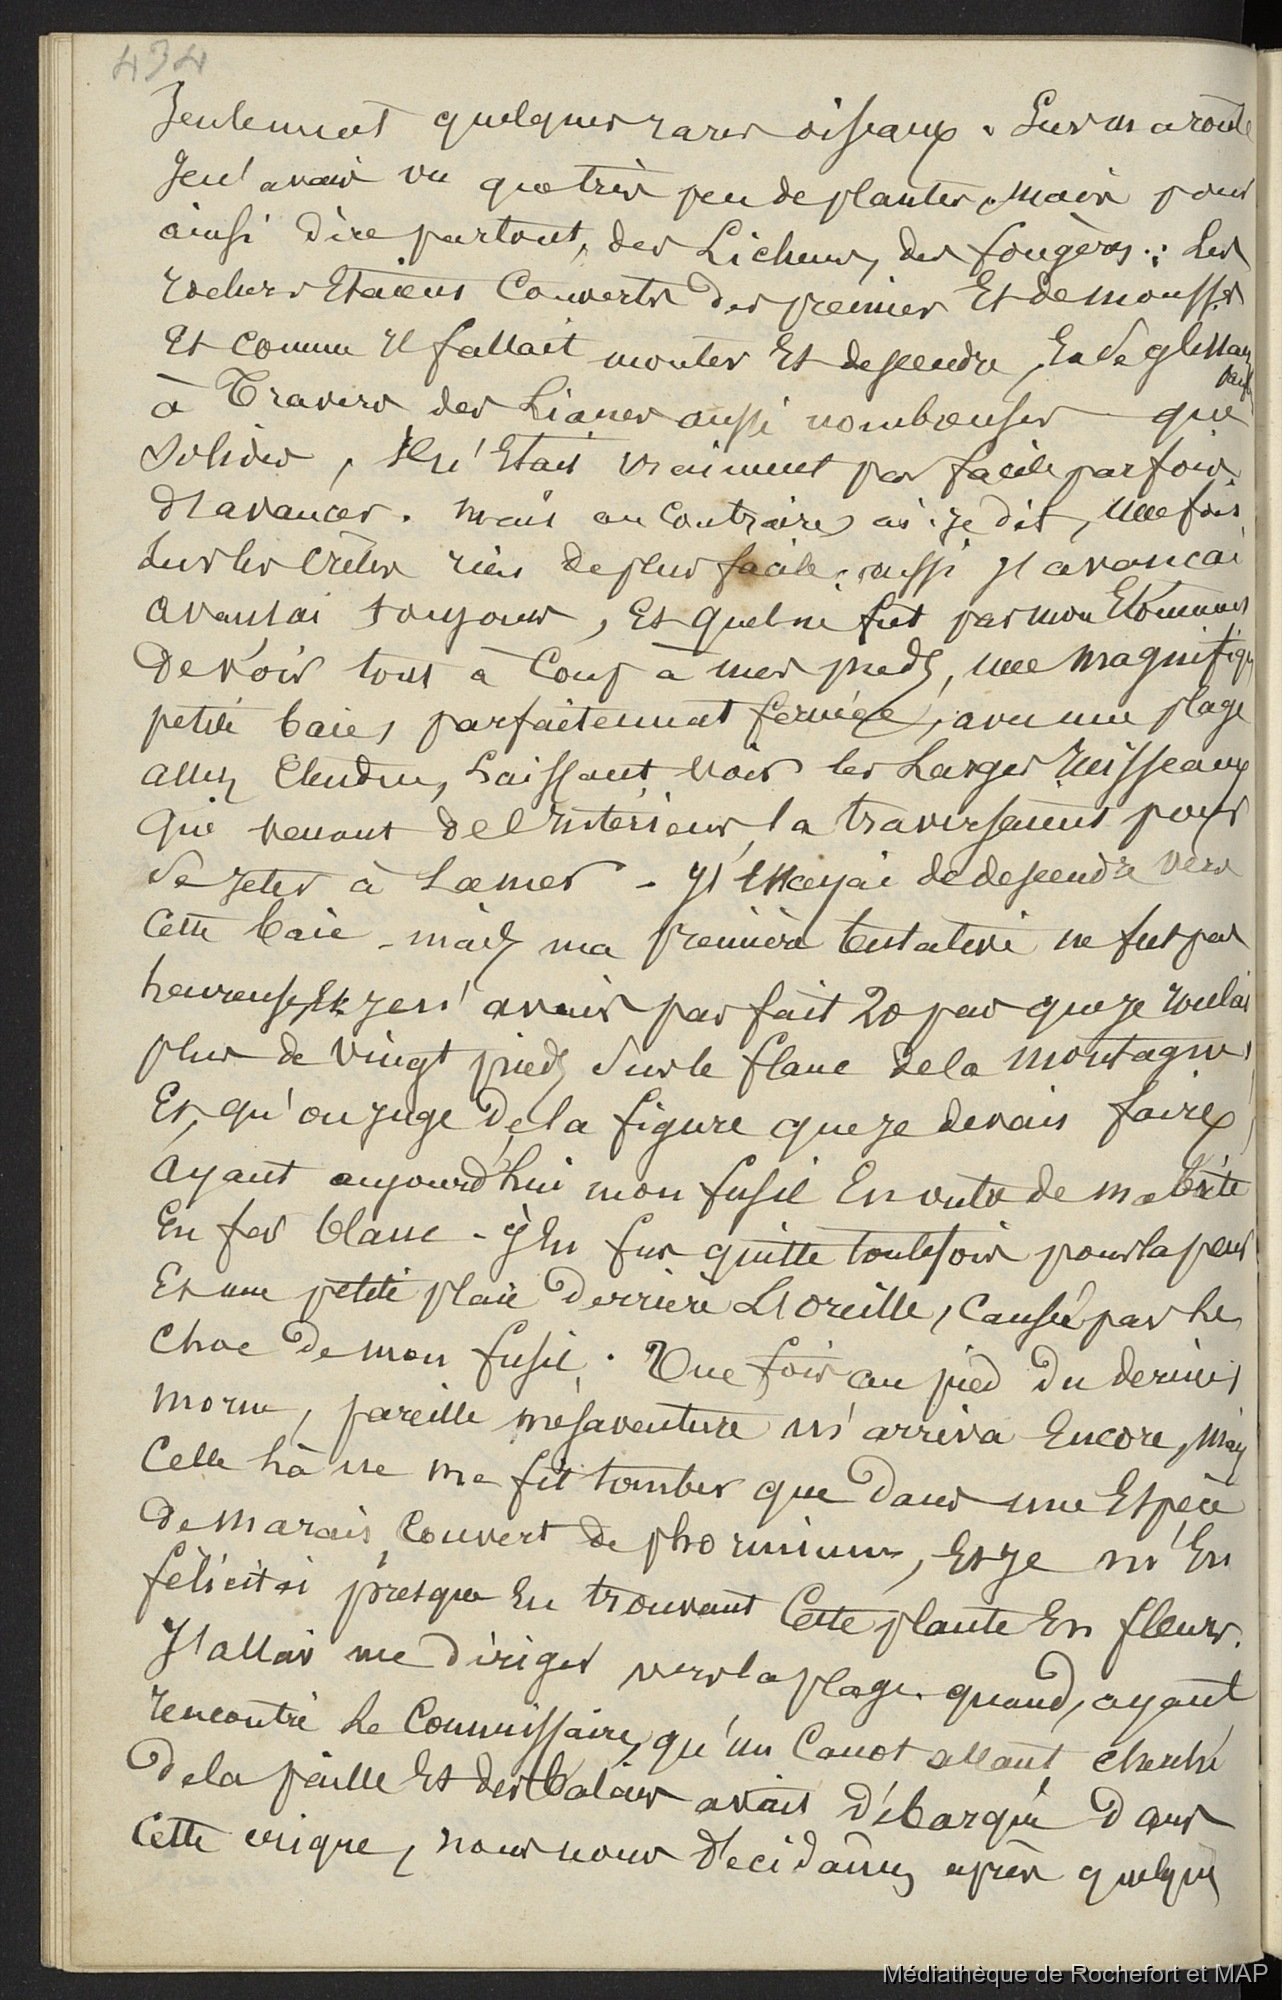 434
seulement quelques rares oiseaux. Sur ma route
je n'avais vu que très peu de plantes, mais pour
ainsi dire partout, des Lichens, des fougères; Les
rochers Etaient Couverts des premiers Et de mousses
Et comme Il fallait monter Et descendre, En se glissant
parfois
à Travers des Lianes aussi nombreuses que
Solides, Il n'Etait vraiment pas facile parfois
d'avancer. Mais au Contraire ai-je dit, Une fois
sur les Crêtes rien de plus facile; aussi j'avancai
avansai toujours, Et quel ne fut pas mon Etonnement
De voir tout à Coup à mes pieds, une Magnifique
petite baie, parfaitement fermée, avec une plage
assez Etendue, Laissant voir les Larges Ruisseaux
Qui venant de l'Intérieur, la traversaient pour
se jeter à La mer - J'Essayai de descendre vers
Cette baie - mais ma première tentative ne fut pas
heureuse, Et je n'avais pas fait 20 pas que je roulai
plus de Vingt pieds sur le flanc de la Montagne,
Et, qu'on juge De la figure que je devais faire,
Ayant aujourd'hui mon fusil En outre de ma boîte
En fer blanc - J'En fus quitte toutefois pour la peur
Et une petite plaie Derrière L'oreille, Causée par Le
Choc De mon fusil. Une fois au pied Du dernier
morne, pareille mésaventure m'arriva Encore, Mais
Celle là ne me fit tomber que Dans une Espèce
De Marais Couvert de phormium, Et je m'En
félicitai presque En trouvant Cette plante En fleurs.
J'allais me Diriger vers la plage quand, ayant
rencontré Le Commissaire, qu'un Canot allant cherché
De la paille Et des balais avait Débarqué Dans
Cette crique, nous nous Décidâmes après quelques
Médiathèque de Rochefort et MAP